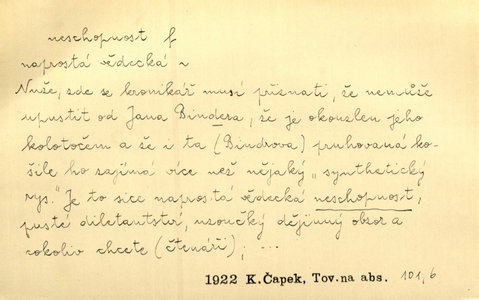 neschopnost f
naprostá vědecká ~
Nuže, zde se kronikář musí přiznati, že nemůže
upustit od Jana Bindera, že je okouzlen jeho
kolotočem a že i ta (Bindrova) pruhovaná ko-
šile ho zajímá více než nějaký „synthetický
rys." Je to sice naprostá vědecká neschopnost,
pusté diletantství, uzoučký dějinný obzor a
cokoliv chcete (čtenáři); ...
1922 K.Čapek, Tov.na abs. 101,6